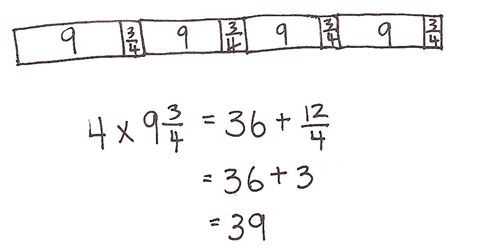 9 3/4 9 3/4 9 3/4 9 3/4
4 × 9 3/4 = 36 + 12/4
= 36 + 3
= 39